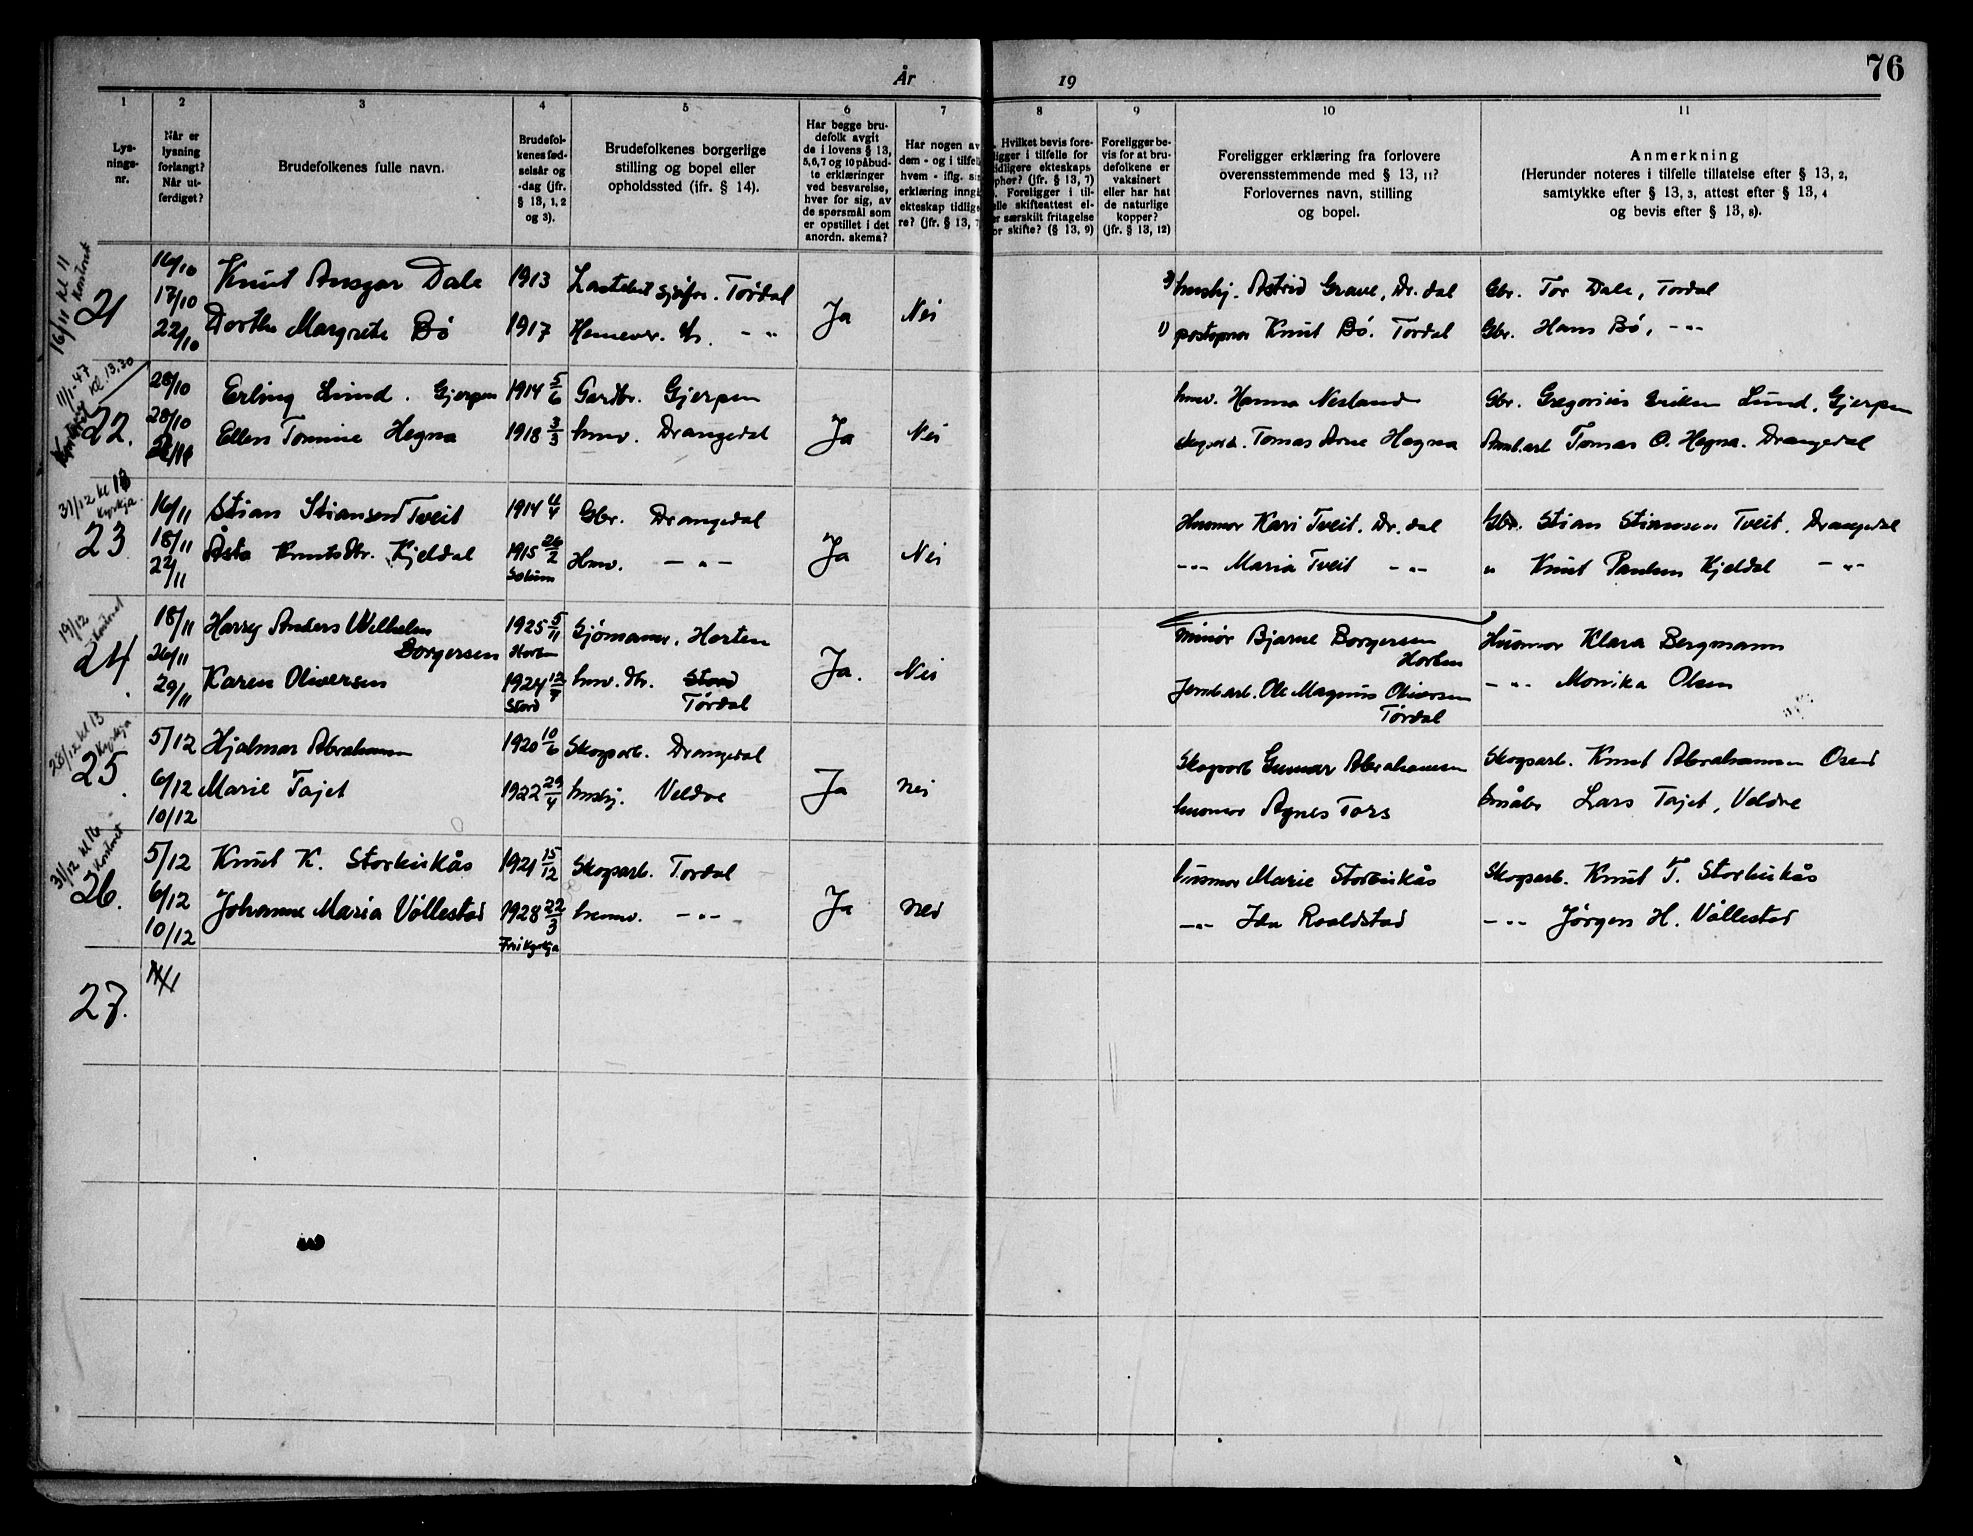 År 19
76
1 2 3 4 5 6 7 8 9 10 11
Lys-
nings-
nr.
Når er
lysning
forlangt?
Når ut-
ferdiget?
Brudefolkenes fulle navn.
Brudefol-
kenes fød-
selsår og
-dag (jfr.
§ 13, 1, 2
og 3).
Brudefolkenes borgerlige
stilling og bopel eller
opholdssted (ifr. § 14).
Har begge bru-
defolk avgit
de i lovens § 13,
5, 6, 7 og 10 påbud-
te erklæringer
ved besvarelse,
hver for sig, av
de spørsmål som
er opstillet i det
anordn. skema?
Har nogen av
dem - og i tilfel
hvem - iflg. si
erklæring inngå
ekteskap tidlige
re? (jfr. § 13, 7
Hvilket bevis fore-
ligger i tilfelle for
idligere ekteskaps
phør? (jfr. § 13, 7)
. Foreligger i til-
elle skifteattest el-
er særskilt fritagelse
or skifte? (§ 13, 9)
Foreligger be-
vis for at bru-
defolkene er
vaksinert
eller har hat
de naturlige
kopper?
(jfr. § 13, 12)
Foreligger erklæring fra forlovere
overensstemmende med § 13, 11?
Forlovernes navn, stilling
og bopel.
Anmerkning
(Herunder noteres i tilfelle tillatelse efter § 13, 2,
samtykke efter § 13, 3, attest efter § 13, 4
og bevis efter § 13, 8).
16/11 kl 11
Kontoret
21
16/10 Knut Ansgar Dale 1913 Tørdal
17/10
22/10 Dorthe Margrete Bö 1917 - " Ja Nei
2) hushj. Astrid Grave, Dr.dal Gbr. Tor Dale, Tordal
1) postopnar Knut Bó. Tordal Gbr. Hans Bó, - " -
11/1-47 kl. 13.30
22.
28/10 Erling Lund . Gjerpen 1914 5/6 Gardbr. Gjerpen
28/10 Ellen Tomine Hegna 1918 3/3 hmv. Drangedal Ja Nei
hmv. Hanna Nesland Gbr. Gregorius Eriksen Lund, Gjerpen
Tomas Arne Hegna Tomas O. Hegna. Drangedal
31/12 kl 18
Kyrkja.
23
16/11 Stian Stiansen Tveit 1914 4/4 Gbr. Drangedal
18/11 Åsta Knutsdtr. Kjeldal 1915 26/2 Hmv. - " - Ja Nei
22/11 Solum
Husmor Kari Tveit. Dr.dal Gbr. Stian Stiansen Tveit, Drangedal
- " - Maria Tveit - " - " Knut Paulsen Kjeldal - " -
19/12
Kontoret
24
18/11 Harry Anders Wilhelm 1925 5/11 Sjömann, Horten
26/11 Borgersen Horten
29/11 Karen Oliversen 1924 12/9 hmv. dtr. Stord Ja. Nei
Stord Tørdal
minör Bjarne Borgersen Husmor Klara Bergmann
Horten
Jernb.arb. Ole Magnus Oliversen - " - Monika Olsen
Tørdal
28/12 kl 13
Kyrkja
25
5/12 Hjalmar Abrahamsen 1920 10/6 Skogsarb. Drangedal
6/12 Marie Tajet 1922 29/4 hushj. Veldre Ja Nei
10/12
Skogsarb Gunnar Abrahamsen Skogsarb. Knut Abrahamsen Osen
husmor Agnes Tors Småbr Lars Tajet, Veldre
31/12 kl 16
Kontoret
26.
5/12 Knut K. Storkukås 1921 15/12 Skogsarb. Tordal
6/12 Johanne Maria Vóllestad 1928 22/3 hemv. - " - Ja Nei
10/12 Frikyrkja
husmor Marie Storkukås Skogsarb. Knut T. Storkukås
- " - Ida Roaldstad - " - Jørgen H. Vóllestad
27.